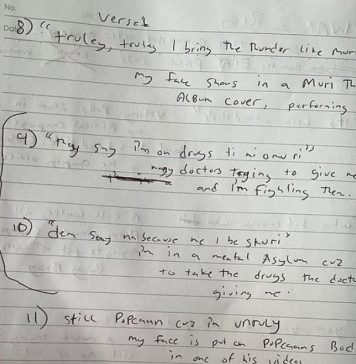 No.
Verse
8) "truley, truley I bring the thunder like mur
my face shows in a Muri Th
Album cover, performing
9) "they say i'm on drugs ti mi omuri"
many doctors trying to give me
and I'm fighting them.
10) "dem say mi because me I be skuri"
i'm in a mental Asylum cuz
to take the drugs the doct
giving me.
11) still Popcaan cuz i'm unruly
my face is put on Popcaans Bod
in one of his videos